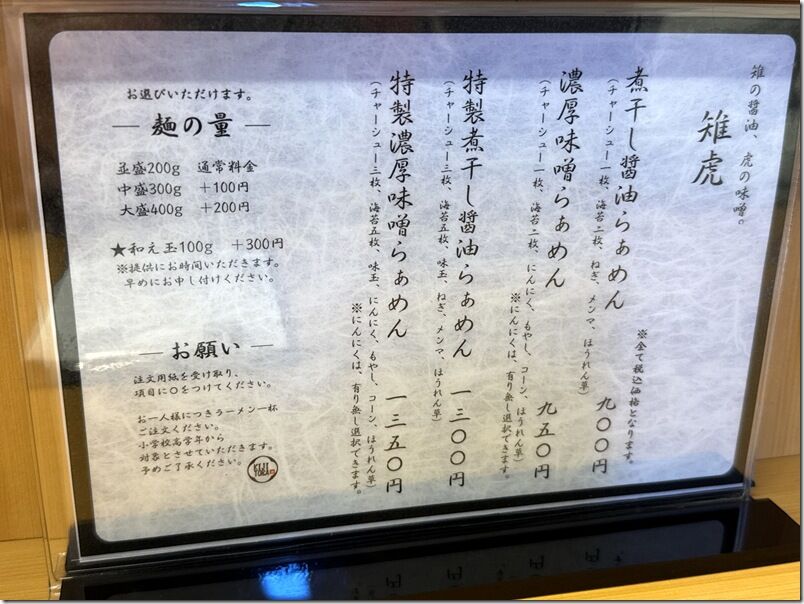 雉の醤油、虎の味噌。
雉虎
※全て税込価格となります。
煮干し醤油らぁめん 九〇〇円
(チャーシュー一枚、海苔二枚、ねぎ、メンマ、ほうれん草)
濃厚味噌らぁめん 九五〇円
(チャーシュー一枚、海苔二枚、にんにく、もやし、コーン、ほうれん草)
※にんにくは、有り無し選択できます。
特製煮干し醤油らぁめん 一三〇〇円
(チャーシュー三枚、海苔五枚、味玉、ねぎ、メンマ、ほうれん草)
特製濃厚味噌らぁめん 一三五〇円
(チャーシュー三枚、海苔五枚、味玉、にんにく、もやし、コーン、ほうれん草)
※にんにくは、有り無し選択できます。
お選びいただけます。
麺の量
並盛200g 通常料金
中盛300g +100円
大盛400g +200円
★和え玉100g +300円
※提供にお時間いただきます。
早めにお申し付けください。
お願い
注文用紙を受け取り、
項目に〇をつけてください。
お一人様につきラーメン一杯
ご注文ください。
小学校高学年から
対象とさせていただきます。
予めご了承ください。
KIJI
TORA